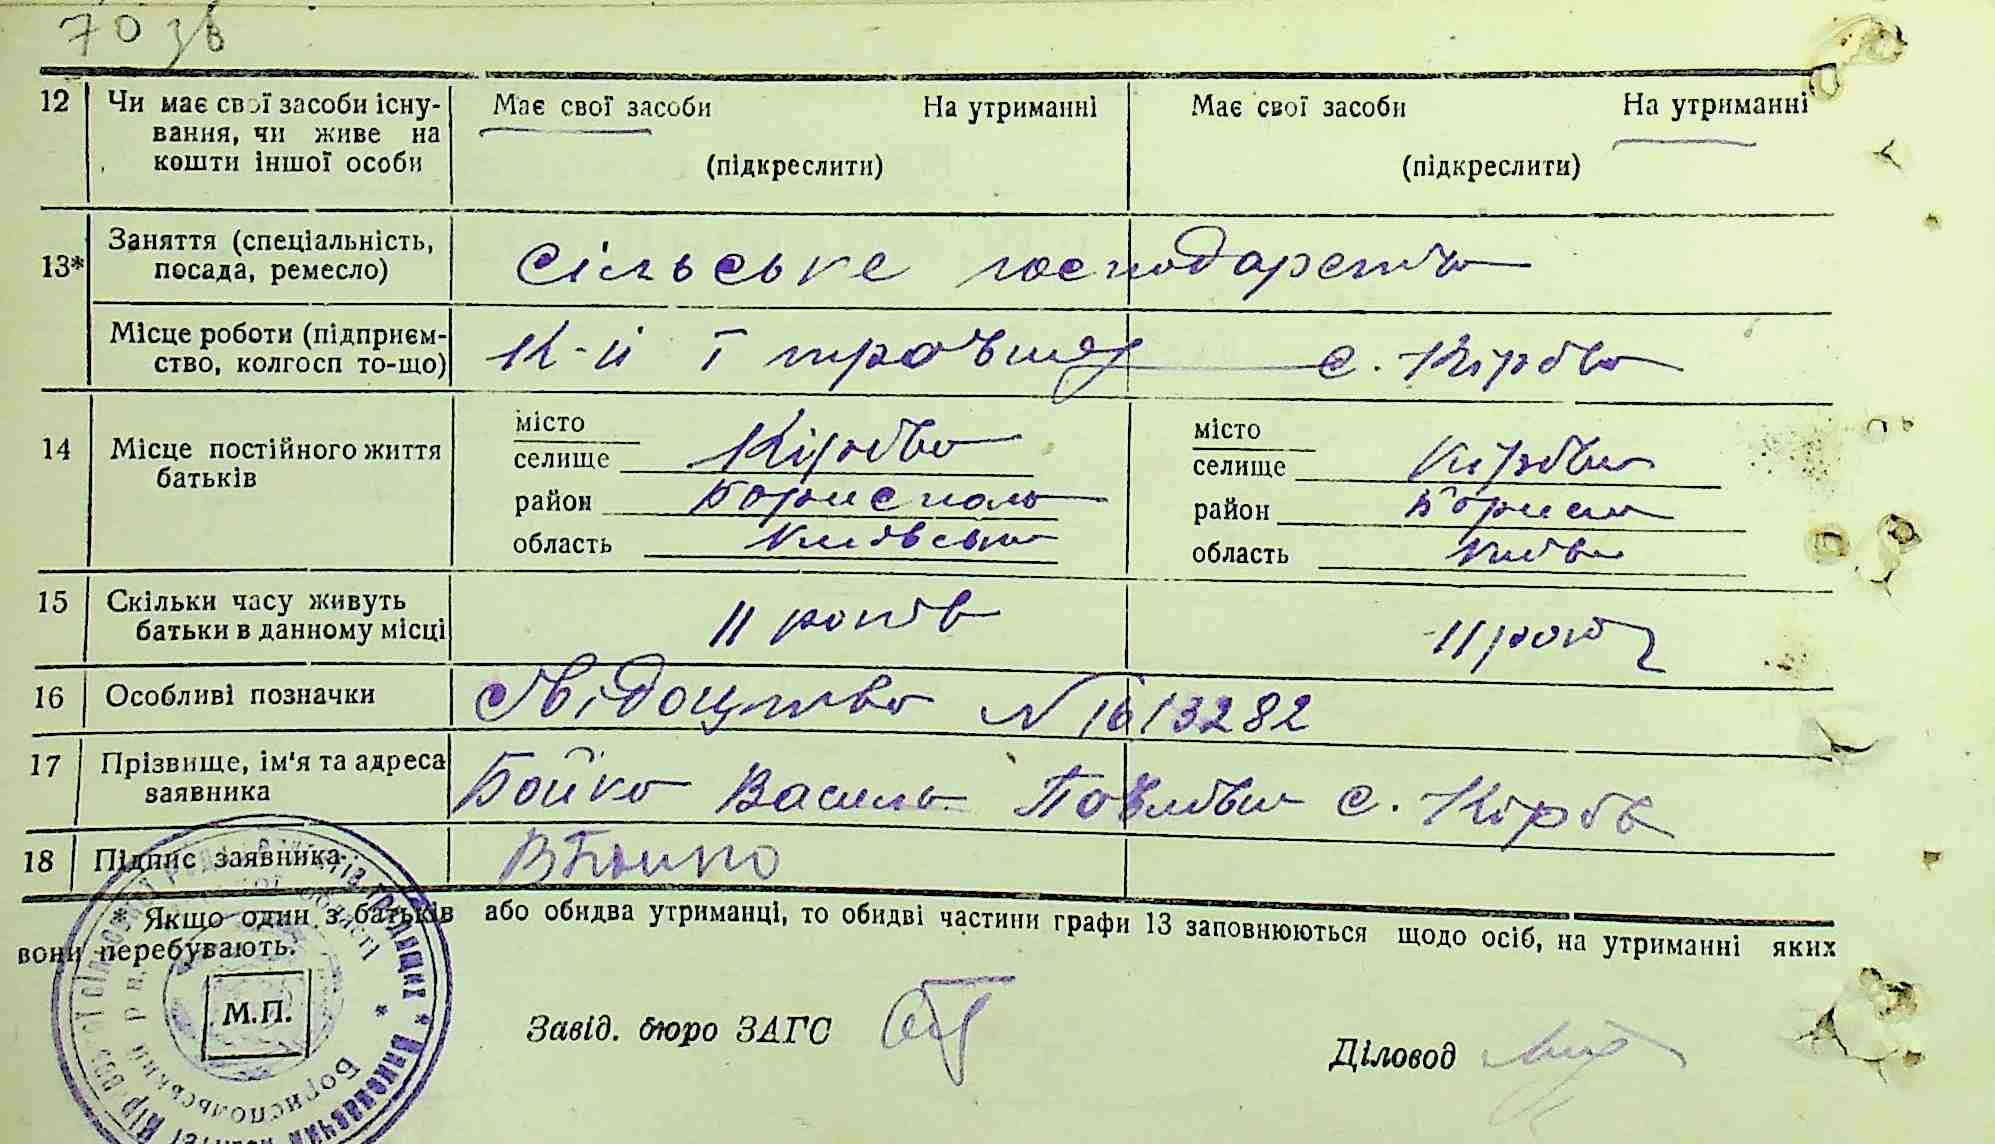 70 зв
12 Чи має свої засоби існу-
вання, чи живе на
кошти іншої особи
Має свої засоби На утриманні
(підкреслити)
Має свої засоби На утриманні
(підкреслити)
13* Заняття (спеціальність,
посада, ремесло)
Сільське господарство
Місце роботи (підприєм-
ство, колгосп то-що)
К-п 1 травня с. Кірово
14 Місце постійного життя
батьків
місто
селище Кірово
район Борисполь
область Київська
місто
селище Кірово
район
область
15 Скільки часу живуть
батьки в данному місці
11 років
11 років
16 Особливі позначки
Свідоцтво N 1613282
17 Прізвище, ім'я та адреса
заявника
Бойко Василь Павлович с.
18 Підпис заявника
ВБойко
* Якщо один з батьків або обидва утриманці, то обидві частини графи 13 заповнюються щодо осіб, на утриманні яких
вони перебувають.
М.П.
Бориспольський
Виконавчий
Завід. бюро ЗАГС
Діловод